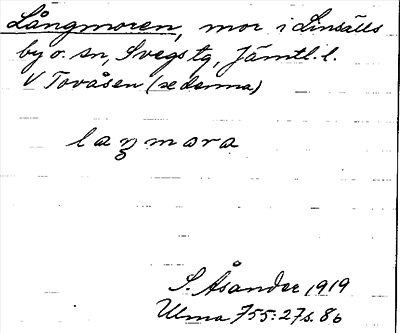 Långmoren, mor i Linsälls
by o. sn, Svegs tg, Jämtl. l.
V Tovåsen (se denna)
laŋmora
S. Åsander 1919
Ulma 755:27 s. 86